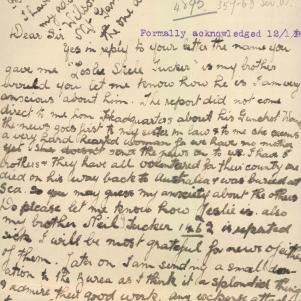 4895 359-63 Sec. W.
Formally acknowledged 12/1
Dear Sir
Yes in reply to your letter the name you
gave me Leslie Tucker is my brother
would you let me know how he is I am very
anxious about him. The report did not come
direct to me from Headquarters about his Gunshot Wound
the news goes first to my sister in law & to me she seems
a very hard hearted woman for we have no mother
yet she doesn't send the news on to us. I have 5
brothers & they have all for this country one
died on his way back to Australia & was buried at
Sea. So you may guess my anxiety about the others
Do please let me know how Leslie is. also
my brother Neil Tucker 1462 is reported
sick I will be most grateful for news of either
of them. Later on I am sending a small don-
ation to the as I think it a splendid thing
& admire their good work. Any